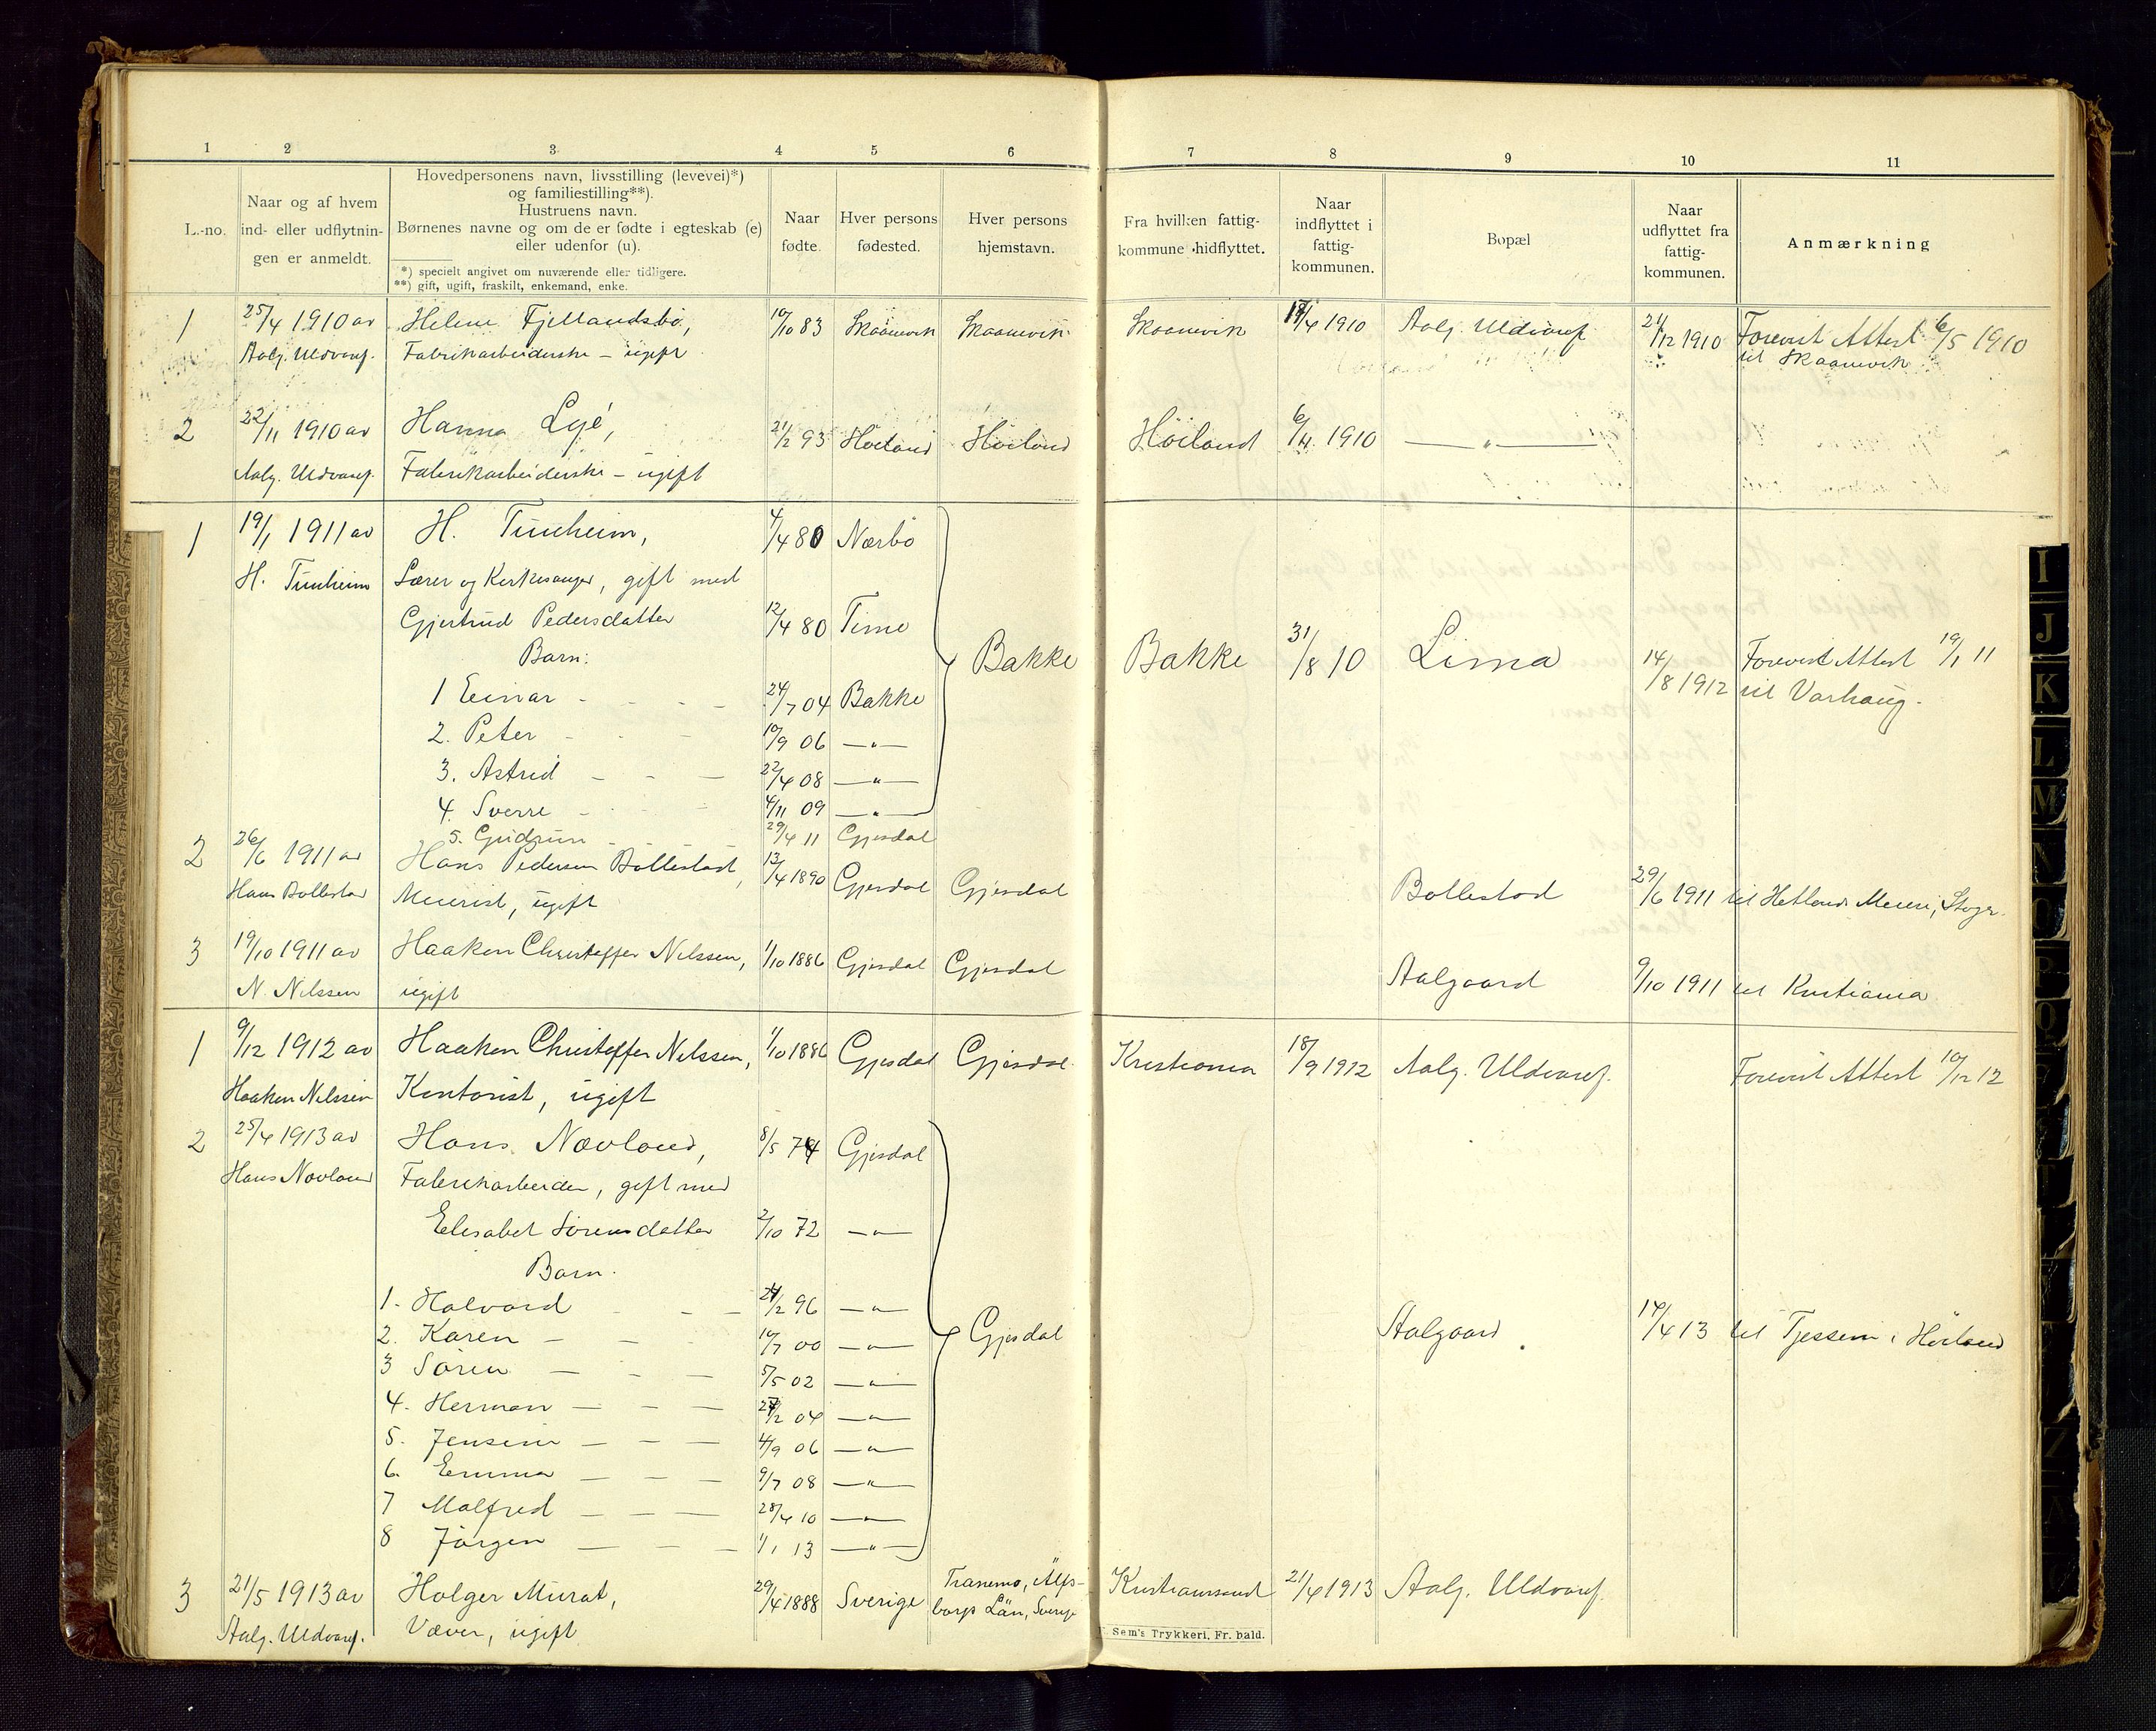 1 2 3 4 5 6 7 8 9 10 11
L.-no.
Naar og af hvem
ind- eller udflytnin-
gen er anmeldt.
Hovedpersonens navn, livsstilling (levevei)*)
og familiestilling**).
Hustruens navn.
Børnenes navne og om de er fødte i egteskab (e)
eller udenfor (u).
*) specielt angivet om nuværende eller tidligere.
**) gift, ugift, fraskilt, enkemand, enke.
Naar
fødte.
Hver persons
fødested.
Hver persons
hjemstavn.
Fra hvilken fattig-
kommune hidflyttet.
Naar
indflyttet i
fattig-
kommunen.
Bopæl
Naar
udflyttet fra
fattig-
kommunen.
Anmærkning
1 25/4 1910 av Helene Fjellandsbö, 10/10 83 Skaanevik Skaanevik Skaanevik /4 1910 Aalg. Uldvaref. 21/12 1910 Forevist Attest 6/5 1910
Aalg. Uldvaref. Fabrikarbeiderske – ugift til Skaanevik
2 22/11 1910 av Hanna Lye, 21/2 93 Höiland Höiland Höiland 6/4 1910 — " —
Aalg. Uldvaref. Fabrikarbeiderske – ugift
1 19/1 1911 av H. Tunheim, 4/4 80 Nærbö
H. Tunheim Lærer og Kirkesanger, gift med
Gjertrud Pedersdatter 12/4 80 Time
Barn: Bakke Bakke 31/8 10 Lima 14/8 1912 Forevist Attest 19/1 11
1 Einar - - - 24/7 04 Bakke til Varhaug.
2. Peter - - 10/9 06 — " —
3. Astrid - - - 22/4 08 — " —
4. Sverre - - - 4/11 09 — " —
5. Gudrun - - 29/4 11 Gjesdal
2 26/6 1911 av Hans Pedersen Bollestad, 13/4 1890 Gjesdal Gjesdal Bollestad 29/6 1911 til Hetlands Meieri,
Hans Bollestad Meierist, ugift
3 19/10 1911 av Haaken Christoffer Nilssen, 1/10 1886 Gjesdal Gjesdal Aalgaard 9/10 1911 til Kristiania
N. Nilssen ugift
1 9/12 1912 av Haaken Christoffer Nilssen, 1/10 1886 Gjesdal Gjesdal Kristiania 18/9 1912 Aalg. Uldvaref. Forevist Attest 10/12 12
Haaken Nilssen Kontorist, ugift
2 25/4 1913 av Hans Nævland, 8/5 74 Gjesdal
Hans Nævland Fabrikarbeider, gift med
Elisabet Sörensdatter 2/10 72 — " —
Barn.
1. Halvard - - - 24/2 96 — " —
2. Karen - - - 10/7 00 — " — Gjesdal Aalgaard 14/4 13 til Tjessem i Höiland
3 Sören - - - 5/5 02 — " —
4. Herman - - - /2 04 — " —
5. Jensine - - - 4/9 06 — " —
6. Emma - - - 9/7 08 — " —
7 Malfred - - - 28/4 10 — " —
8 Jörgen - - - 1/1 13 — " —
3 21/5 1913 av Holger Murat, 29/4 1888 Sverige Tranemo, Älfs- Kristianssand 21/4 1913 Aalg. Uldvaref.
Aalg. Uldvaref. Væver, ugift borgs Län, Sverige
Sem's Trykkeri, Fr. hald.
I
J
K
L
M
N
O
P
Q